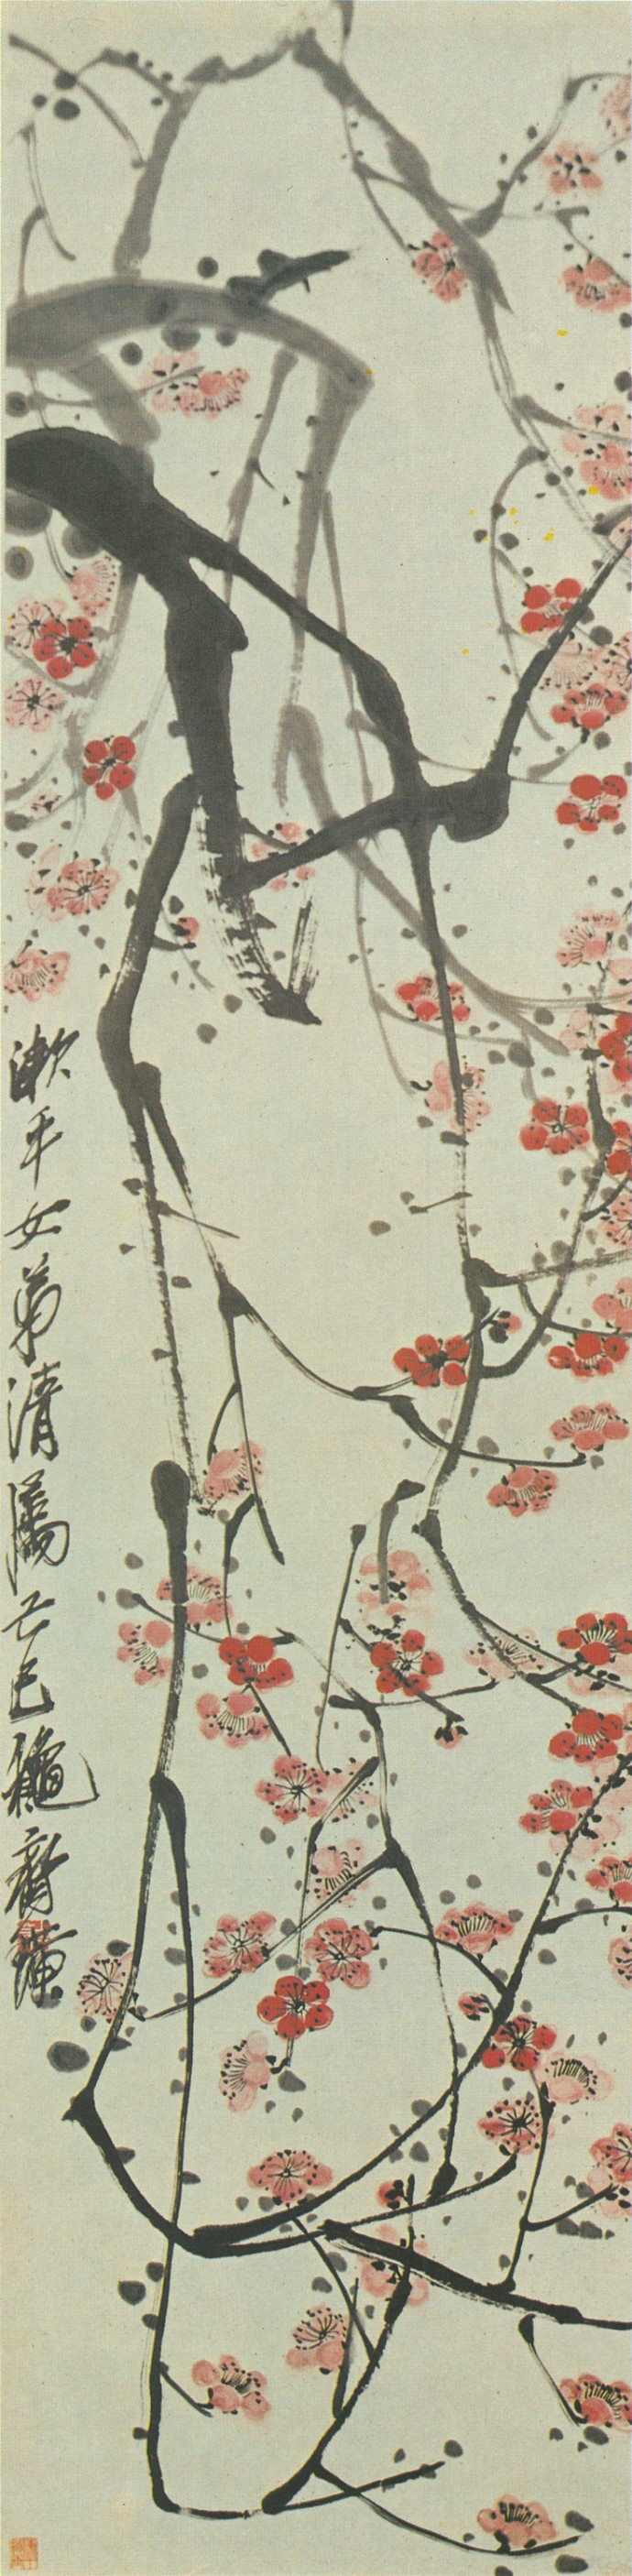 漱平女弟清屬己巳龝齊璜